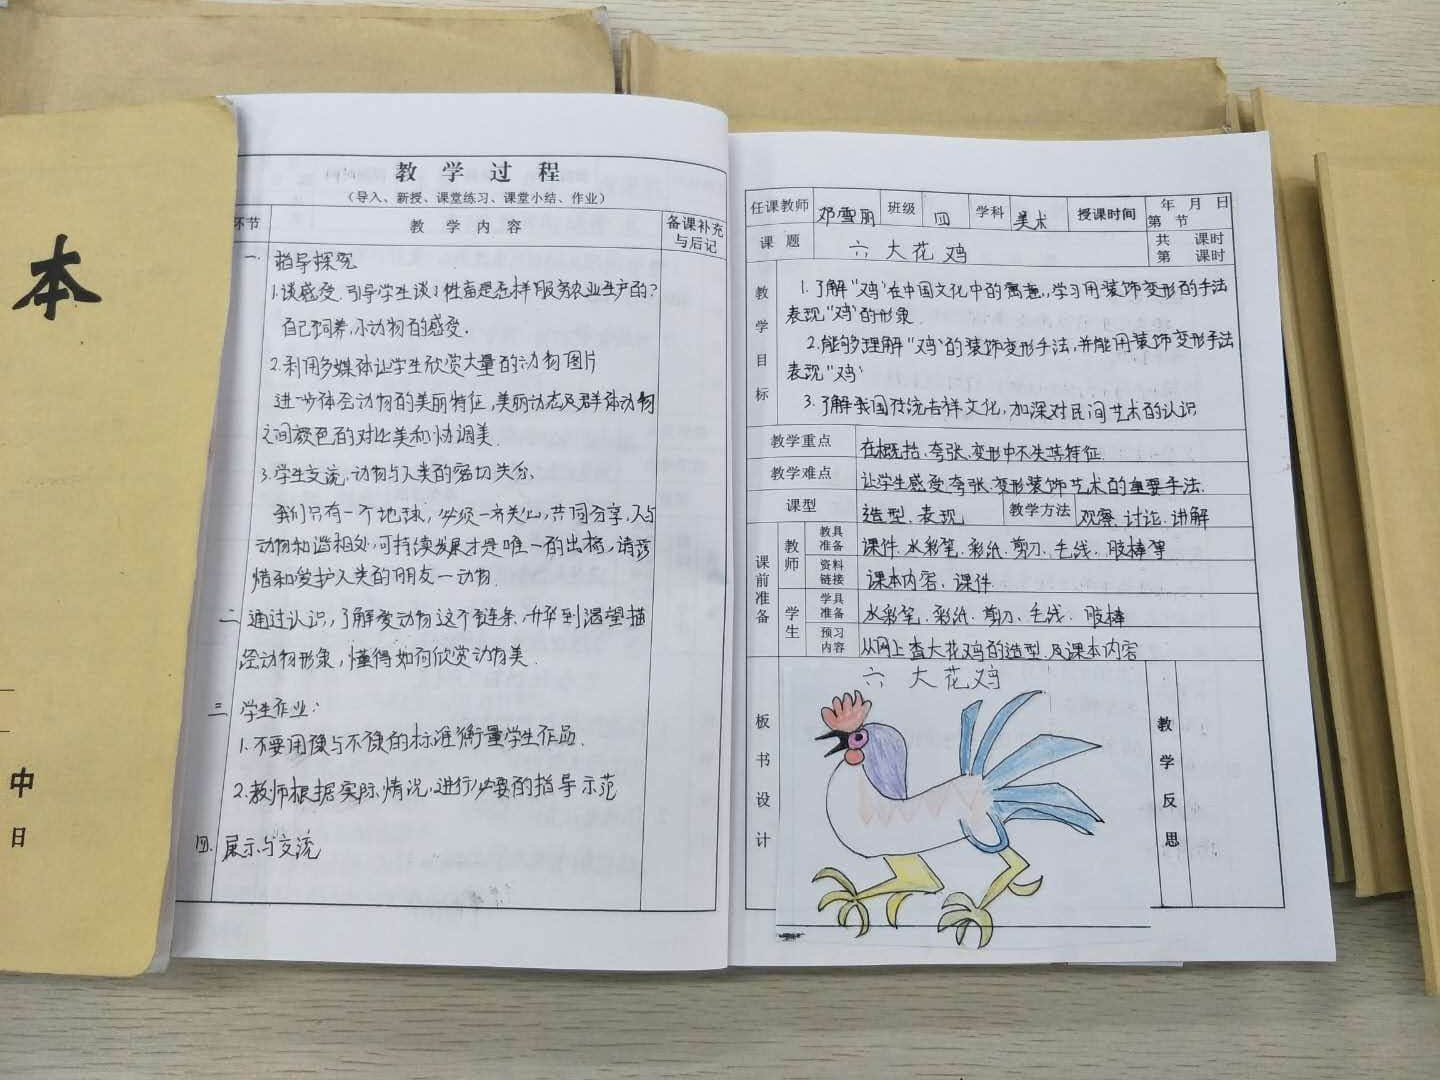 本
中
日
教学过程
（导入、新授、课堂练习、课堂小结、作业）
环节 教学内容 备课补充与后记
一. 指导探究
1.谈感受.引导学生谈谈牲畜是怎样服务农业生产的?
自己饲养小动物的感受.
2.利用多媒体让学生欣赏大量的动物图片
进一步体会动物的美丽特征,美丽动态及群体动物
之间颜色的对比美和协调美.
3.学生交流,动物与人类的密切关系.
我们只有一个地球,必须一齐关心,共同分享,人与
动物和谐相处,可持续发展才是唯一的出路,请珍
惜和爱护人类的朋友—动物.
二 通过认识,了解爱动物这个链条,升华到渴望描
绘动物形象,懂得如何欣赏动物美.
三 学生作业:
1.不要用像与不像的标准衡量学生作品.
2.教师根据实际情况,进行必要的指导示范
四. 展示与交流
任课教师 邓雪丽 班级 四 学科 美术 授课时间 年 月 日
第 节
课题 六 大花鸡 共 课时
第 课时
教学目标
1.了解"鸡"在中国文化中的寓意,学习用装饰变形的手法
表现"鸡"的形象.
2.能够理解"鸡"的装饰变形手法,并能用装饰变形手法
表现"鸡"
3.了解我国传统吉祥文化,加深对民间艺术的认识
教学重点 在概括、夸张、变形中不失其特征.
教学难点 让学生感受夸张、变形装饰艺术的重要手法.
课型 造型、表现 教学方法 观察、讨论、讲解
课前准备
教师 教具准备 课件、水彩笔、彩纸、剪刀、毛线、胶棒等
资料链接 课本内容、课件
学生 学具准备 水彩笔、彩纸、剪刀、毛线、胶棒
预习内容 从网上查大花鸡的造型及课本内容
板书设计 六 大花鸡 教学反思